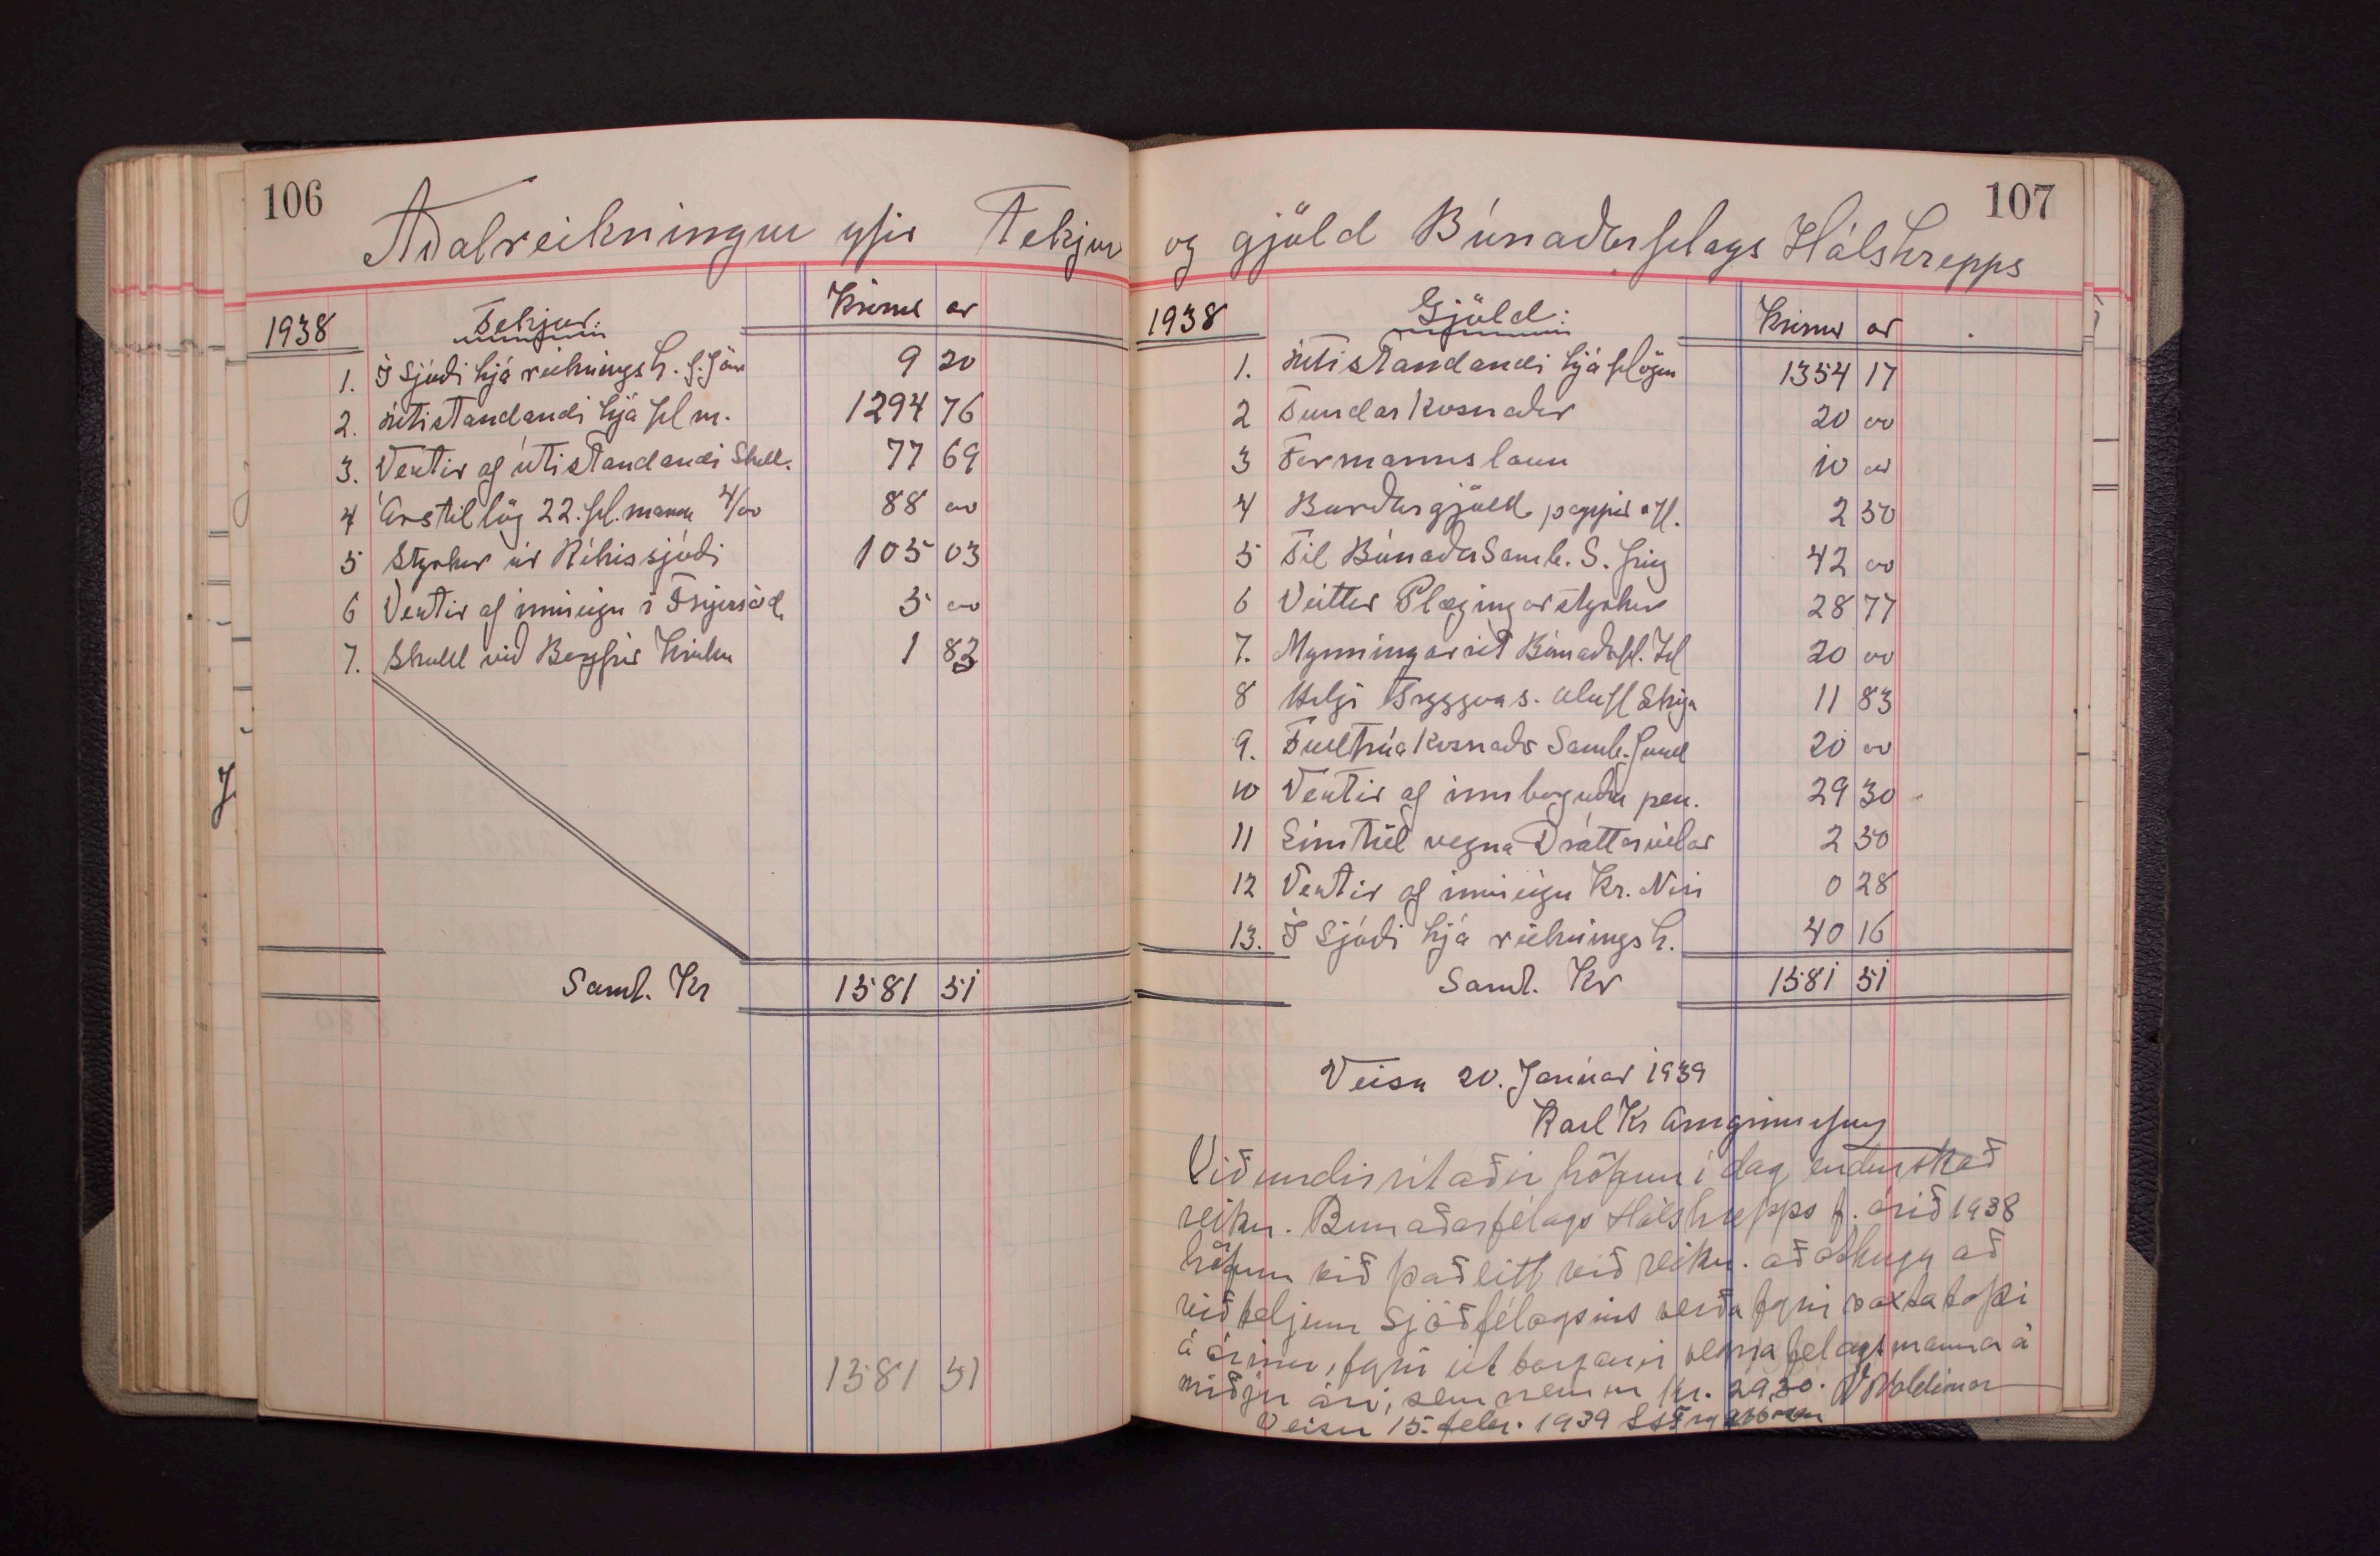 106
107
Aðalreikningur yfir Tekjur og gjöld Búnaðarfelags Hálshrepps
1938 Tekjur: Krónur ar
1. Í Sjóði hjá reiknings h. f. Jan 9 20
2. útistandandi hjá fel m. 1294 76
3. Vextir af útistandandi Skull. 77 69
4 Árstillög 22. fel. manna 4/00 88 00
5 Styrkur úr Ríkissjóði 105 03
6 Vextir af inneign í 5 00
7. Skuld við 1 83
Saml. Kr 1581 51
1581 51
1938 Gjöld: Krónur ar
1. útistandandi hjá 1354 17
2 Fundarkosnaður 20 00
3 Formannslaun 10 00
4 Burðargjöld pappír ofl. 2 50
5 Til Búnaðar Samb. S. Þing 42 00
6 Veittur Plægingarstyrkur 28 77
7. Mynningarrit Búnaðarfel. 20 00
8 Helgi Tryggvas. 11 83
9. Fulltrúa Kosnaðr Samb. fund 20 00
10 Vextir af innborguðu pen. 29 30
11 Símtöl vegna Dráttarvélar 2 50
12 Vextir af inneign Kr. 0 28
13. Í Sjóði hjá reiknings h. 40 16
Saml. Kr 1581 51
Veisu 20. Janúar 1939
Karl Kr Arngrimsson
Við undirritaðir höfum í dag endurskoð
reikn. Bunaðarfélags Hálshrepps f. árið 1938
höfum við það eitt við reikn. að athuga að
við teljum Sjóð félagsins verða fyrir vaxtatapi
á árinu, fyrir útborganir vegna felagsmanna á
miðju ári, sem nemur kr. 29,30. V Valdimar
Veisu 15. febr. 1939